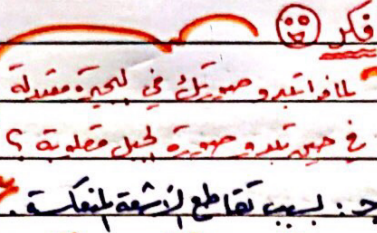 فكر
لماذا تبدو صورتك في البحيرة معتدلة
في حين تبدو صورة الجبل مقلوبة ؟
جـ : بسبب تقاطع الأشعة المنعكسة .